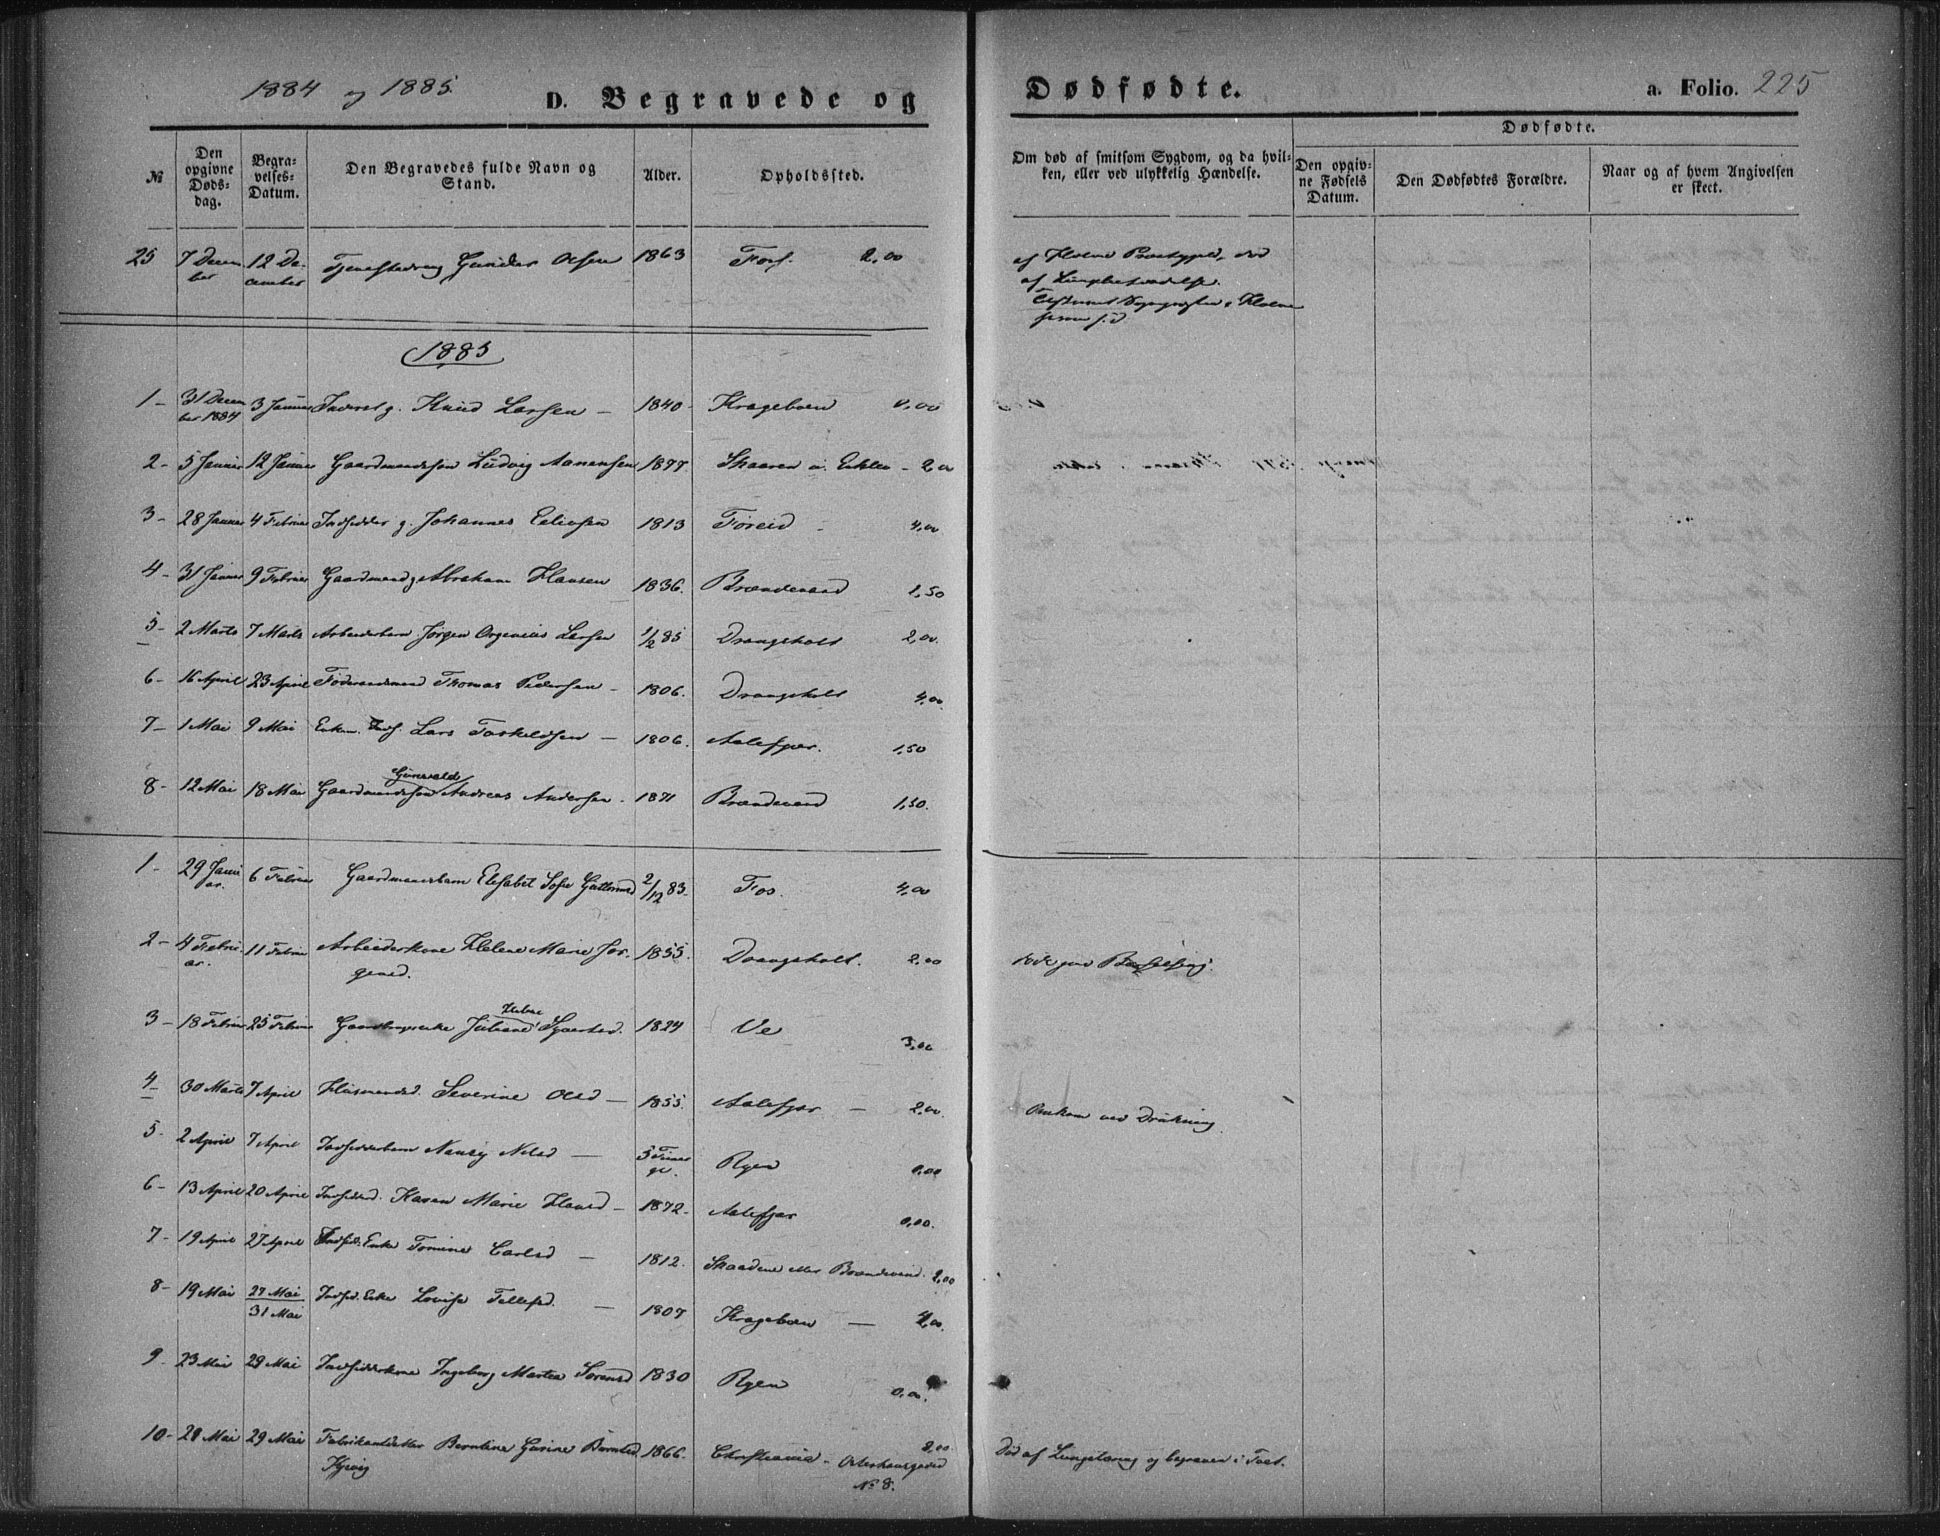 1884 og 1885.
D. Begravede og
Dødfødte.
a. Folio. 225
№
Den opgivne Døds-dag.
Begra-velses-Datum.
Den Begravedes fulde Navn og Stand.
Alder.
Opholdssted.
Om død af smitsom Sygdom, og da hvil-ken, eller ved ulykkelig Hændelse.
Dødfødte.
Den opgiv-ne Fødsels Datum.
Den Dødfødtes Forældre.
Naar og af hvem Angivelsen er skeet.
25 7 Decem ber 12 De-cember Tjenestedreng Gunder Olsen 1863 Foss. 2,00
af Lungebetændelse.
1885
1 - 31 Decem ber 1884 3 Januar Knud Larsen - 1840 - Krageboen 0,00
2 - 5 Januar 12 Januar Gaardmandssøn Ludvig Aanensen 1877 Skaaren - 2,00
3 - 28 Januar 4 Februar Indsidder g. Johannes Eelievsen 1813 Føreid - 4,00
4 - 31 Januar 9 Februar Gaardmand g. Abraham Hansen 1836. Brændevand 1,50
5 - 2 Marts 7 Marts Arbeiderbarn Jørgen Larsen 1/2 85 Drangsholt 2,00.
6 - 16 April 23 April Føderaadsmand Thomas Pedersen - 1806. Drangsholt 4,00
7 - 1 Mai 9 Mai Enkem. Inds. Lars Torkeldsen - 1806. Aalefjær. 1,50
8 - 12 Mai 18 Mai Gaardmandssøn Gunvald Andreas Andersen - 1871 Brændevand 1,50.
1 - 29 Janu ar. 6 Februar Gaardmandsbarn Elisabet Sofie Guttormsd 2/12 83. Fos. 4,00
2 - 4 Febru ar. 11 Februar Arbeiderkone Helene Marie Jør-gensd. 1855. Drangsholt. 2,00 Barselseng.
3 - 18 Februar 25 Februar Juliane 1824 Ve 3,00
4 - 30 Marts 7 April Husmandsd. Severine Olsd - 1855. Aalefjær - 2,00. Omkom ved Drukning.
5 - 2 April 7 April Indsidderbarn Nilsd - 5 Ryen 0,00
6 - 13 April 20 April Indsidderd. Karen Marie Hansd - 1872 - Aalefjær 0,00.
7 - 19 April 27 April Indsid. Enke Tomine Carlsd - 1812. Skaadene eller Brændevand. 2,00
8 - 19 Mai 27 Mai 31 Mai Indsid. Enke Lovise Tellefsd. - 1807 Krageboen - 4,00.
9 - 23 Mai 29 Mai Indsidderkone Ingeborg Martea Sørensd 1830 Ryen 0,00.
10 - 28 Mai 29 Mai Fabrikantdatter Berntine Gurine Berntsd Kjevig 1866. Christiania - 2,00 No 8. Død af Lungetæring og begraven i Tvet.